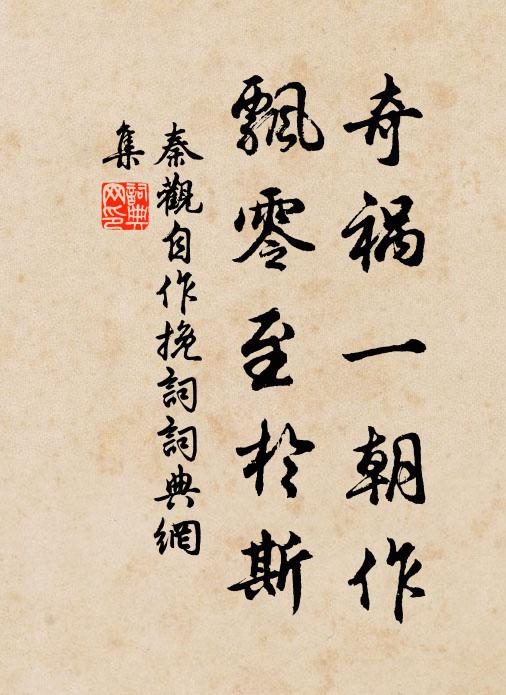 奇祸一朝作
飄零至於斯
秦觀自作挽詞詞典網
集
詞典
网印